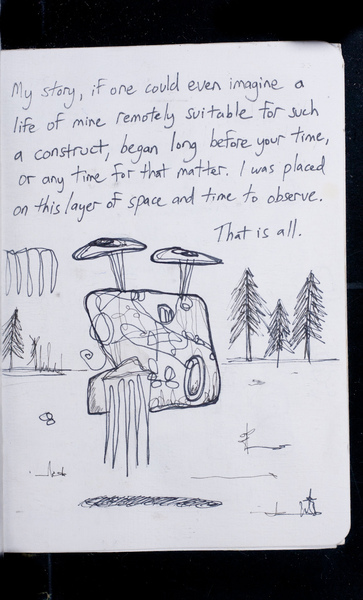 My story, if one could even imagine a
life of mine remotely suitable for such
a construct, began long before your time,
or any time for that matter. I was placed
on this layer of space and time to observe.
That is all.